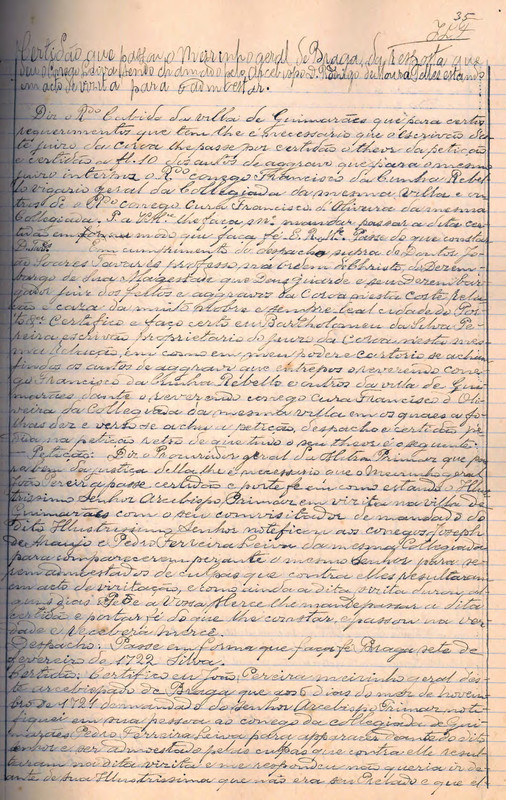 35
Certidão que passou o Meirinho geral de Braga, da resposta que
deu o Conego Leiva sendo chamado pelo Arcebispo D. Rodrigo de Moura Telles estando
em acto de visita para o admoestar.
Diz o Rdo Cabido da villa de Guimarães que para certos
requerimentos que tem lhe é necessario que o escrivão des-
te juizo da corva lhe passe por certidão o theor da petição
e certidão a fl. 10 dos autos de aggravo que para o mesmo
juizo interpoz o Rdo conego Francisco da Cunha Rebel-
lo vigario geral da Collegiada da mesma villa e ou-
tros de o Rdo conego Cura Francisco d'Oliveira da mesma
Collegiada. P. a V. Mce lhe faça mce mandar passar a dita cer-
tidão em modo que faça fé E. R. Mce. Passe do que constar
Em cumprimento do despacho supra do Doutor Jo-
ão Soares Tavares professo na Ordem de Christo, do Dezem-
bargo de Sua Magestade que Deus Guarde e seu Dezembar-
gador juiz dos feitos e aggravos da Coroa nesta Corte, rela-
ção e caza da muito nobre e sempre leal cidade do Por-
to &c. Certifico e faço certo eu Bartholomeu da Silva Pe-
reira escrivão proprietario do juizo da Coroa nesta mes-
ma Relação, em como em meu poder e cartorio se acham
findos os autos de aggravo que entrepôs o reverendo cone-
go Francisco da Cunha Rebello e outros da villa de Gui-
marães dante o reverendo conego Cura Francisco d'Oli-
veira da Collegiada da mesma villa em os quaes a fo-
lhas dez e verso se acha a petição, despacho e certidão, fe-
ita na petição retro de que tudo o seu theor é o seguinte:
— Petição: Diz o Procurador geral da Mitra Primaz que pa-
ra bem da justiça della lhe é necessario que o Meirinho geral
João Pereira passe certidão e porte fé em como estando o Illus-
trissimo Senhor Arcebispo Primaz em visita na villa de
Guimarães com o seu convisitador de mandado do
Dito Illustrissimo Senhor notificou aos conegos Joseph
de Araujo e Pedro Ferreira Leiva da mesma Collegiada
para comparecerem perante o mesmo Senhor para se-
rem admoestados de culpas que contra elles resultaram
em acto de visitação, e como ainda a dita visita durou al-
guns dias P. P. e a Vossa Merce lhe mande passar a dita
certidão e portar fé do que lhe constar, e passou na ver-
dade e Receberá Mercê.
Despacho: Passe em forma que faça fé Braga sete de
Fevereiro de 1722 Silva.
Certidão: Certifico eu João Pereira meirinho geral des-
te arcebispado de Braga que aos 6 dias do mez de novem-
bro de 1721 de mandado do Senhor Arcebispo Primaz noti-
fiquei em sua pessoa ao conego da collegiada de Gui-
marães Pedro Ferreira Leiva para apparecer deante do dito
senhor e ser admoestado pelas culpas que contra elle resul-
taram na dita visita e me respondeu não queria ir de-
ante de sua Illustrissima que não era seu Prelado e que el